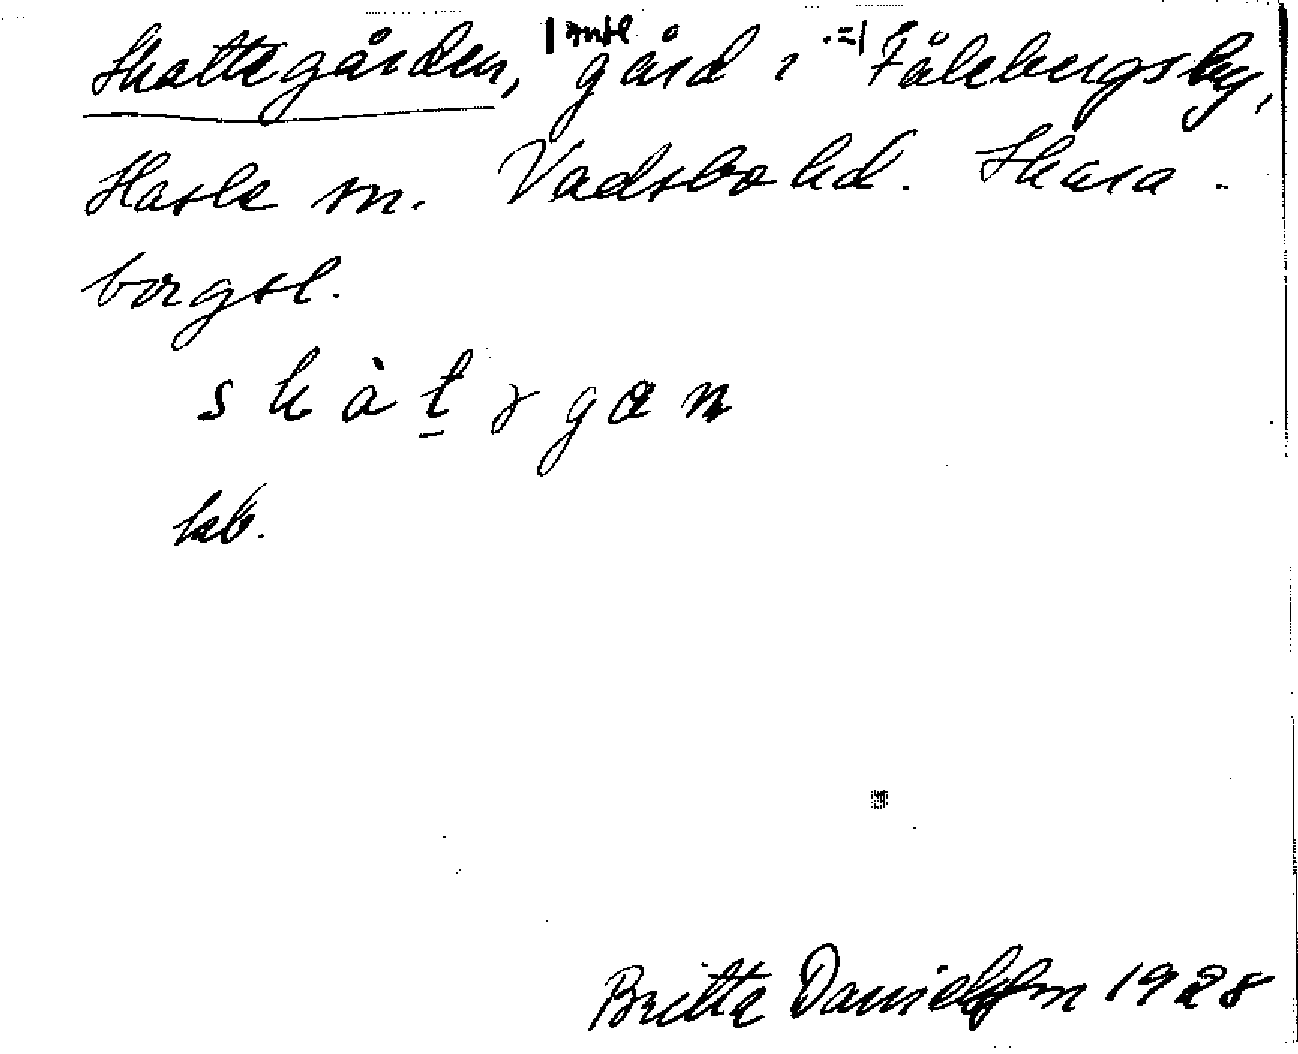 Skattegården, gård i Fålebergsby,
Hasle sn. Vadsbo hd. Skara-
borgsl.
skàt̲ɤgɑn
kb.
Britta Danielsson 1928